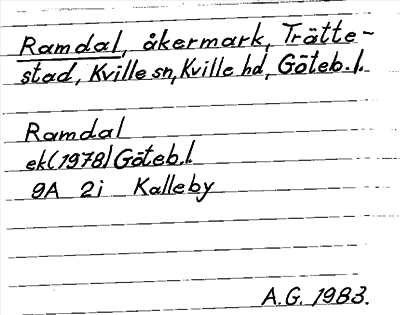 Ramdal, åkermark, Trätte-
stad, Kville sn, Kville hd, Göteb.l.
Ramdal
ek(1978) Göteb.l.
9A 2i Kalleby
A.G. 1983.